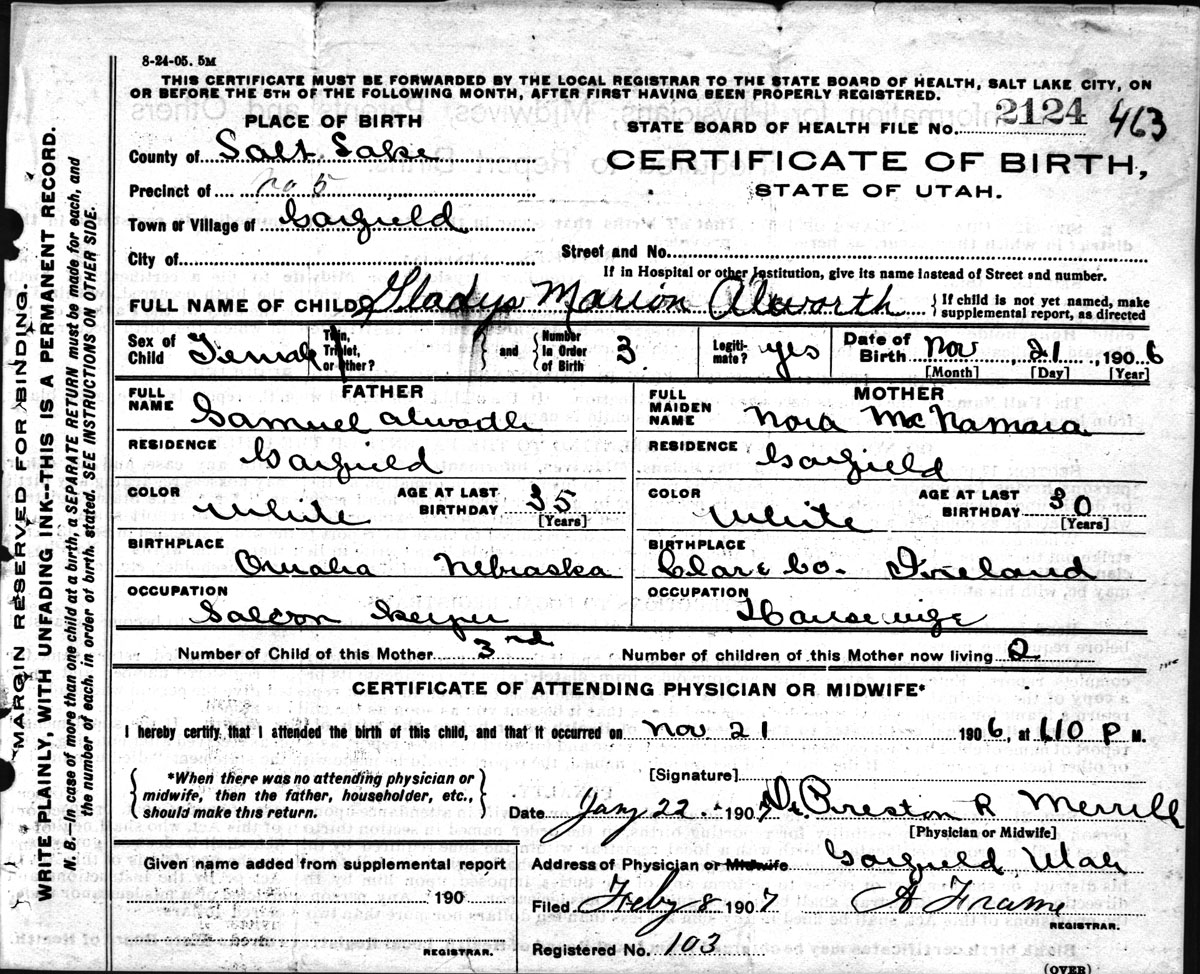 8-24-05. 5M
THIS CERTIFICATE MUST BE FORWARDED BY THE LOCAL REGISTRAR TO THE STATE BOARD OF HEALTH, SALT LAKE CITY, ON
OR BEFORE THE 5TH OF THE FOLLOWING MONTH, AFTER FIRST HAVING BEEN PROPERLY REGISTERED.
PLACE OF BIRTH
STATE BOARD OF HEALTH FILE No. 2124 463
County of Salt Lake
CERTIFICATE OF BIRTH,
Precinct of no 5
STATE OF UTAH.
Town or Village of Garfield
City of
Street and No.
If in Hospital or other Institution, give its name instead of Street and number.
FULL NAME OF CHILD Gladys Marion Alworth { If child is not yet named, make supplemental report, as directed
Sex of Child Female Twin, Triplet, or other? } and { Number in Order of Birth 3 Legiti-mate? yes Date of Birth Nov, 21, 1906
[Month] [Day] [Year]
FATHER
MOTHER
FULL NAME Samuel Alworth
FULL MAIDEN NAME Nora McNamara
RESIDENCE Garfield
RESIDENCE Garfield
COLOR White AGE AT LAST BIRTHDAY 35 [Years]
COLOR White AGE AT LAST BIRTHDAY 30 [Years]
BIRTHPLACE Omaha Nebraska
BIRTHPLACE Clare Co. Ireland
OCCUPATION Saloon Keeper
OCCUPATION Housewife
Number of Child of this Mother 3nd
Number of children of this Mother now living
CERTIFICATE OF ATTENDING PHYSICIAN OR MIDWIFE*
I hereby certify, that I attended the birth of this child, and that it occurred on Nov 21 1906, at 110 P M.
{ *When there was no attending physician or midwife, then the father, householder, etc., should make this return. }
[Signature]
Date Jany 22. 1907 Dr. Preston R Merrill
[Physician or Midwife]
Given name added from supplemental report
190
REGISTRAR.
Address of Physician or Midwife Garfield, Utah
Filed Feby 8 1907 Frame
REGISTRAR.
Registered No. 103
(OVER)
MARGIN RESERVED FOR BINDING.
WRITE PLAINLY, WITH UNFADING INK--THIS IS A PERMANENT RECORD.
N. B.—In case of more than one child at a birth, a SEPARATE RETURN must be made for each, and
the number of each, in order of birth, stated. SEE INSTRUCTIONS ON OTHER SIDE.